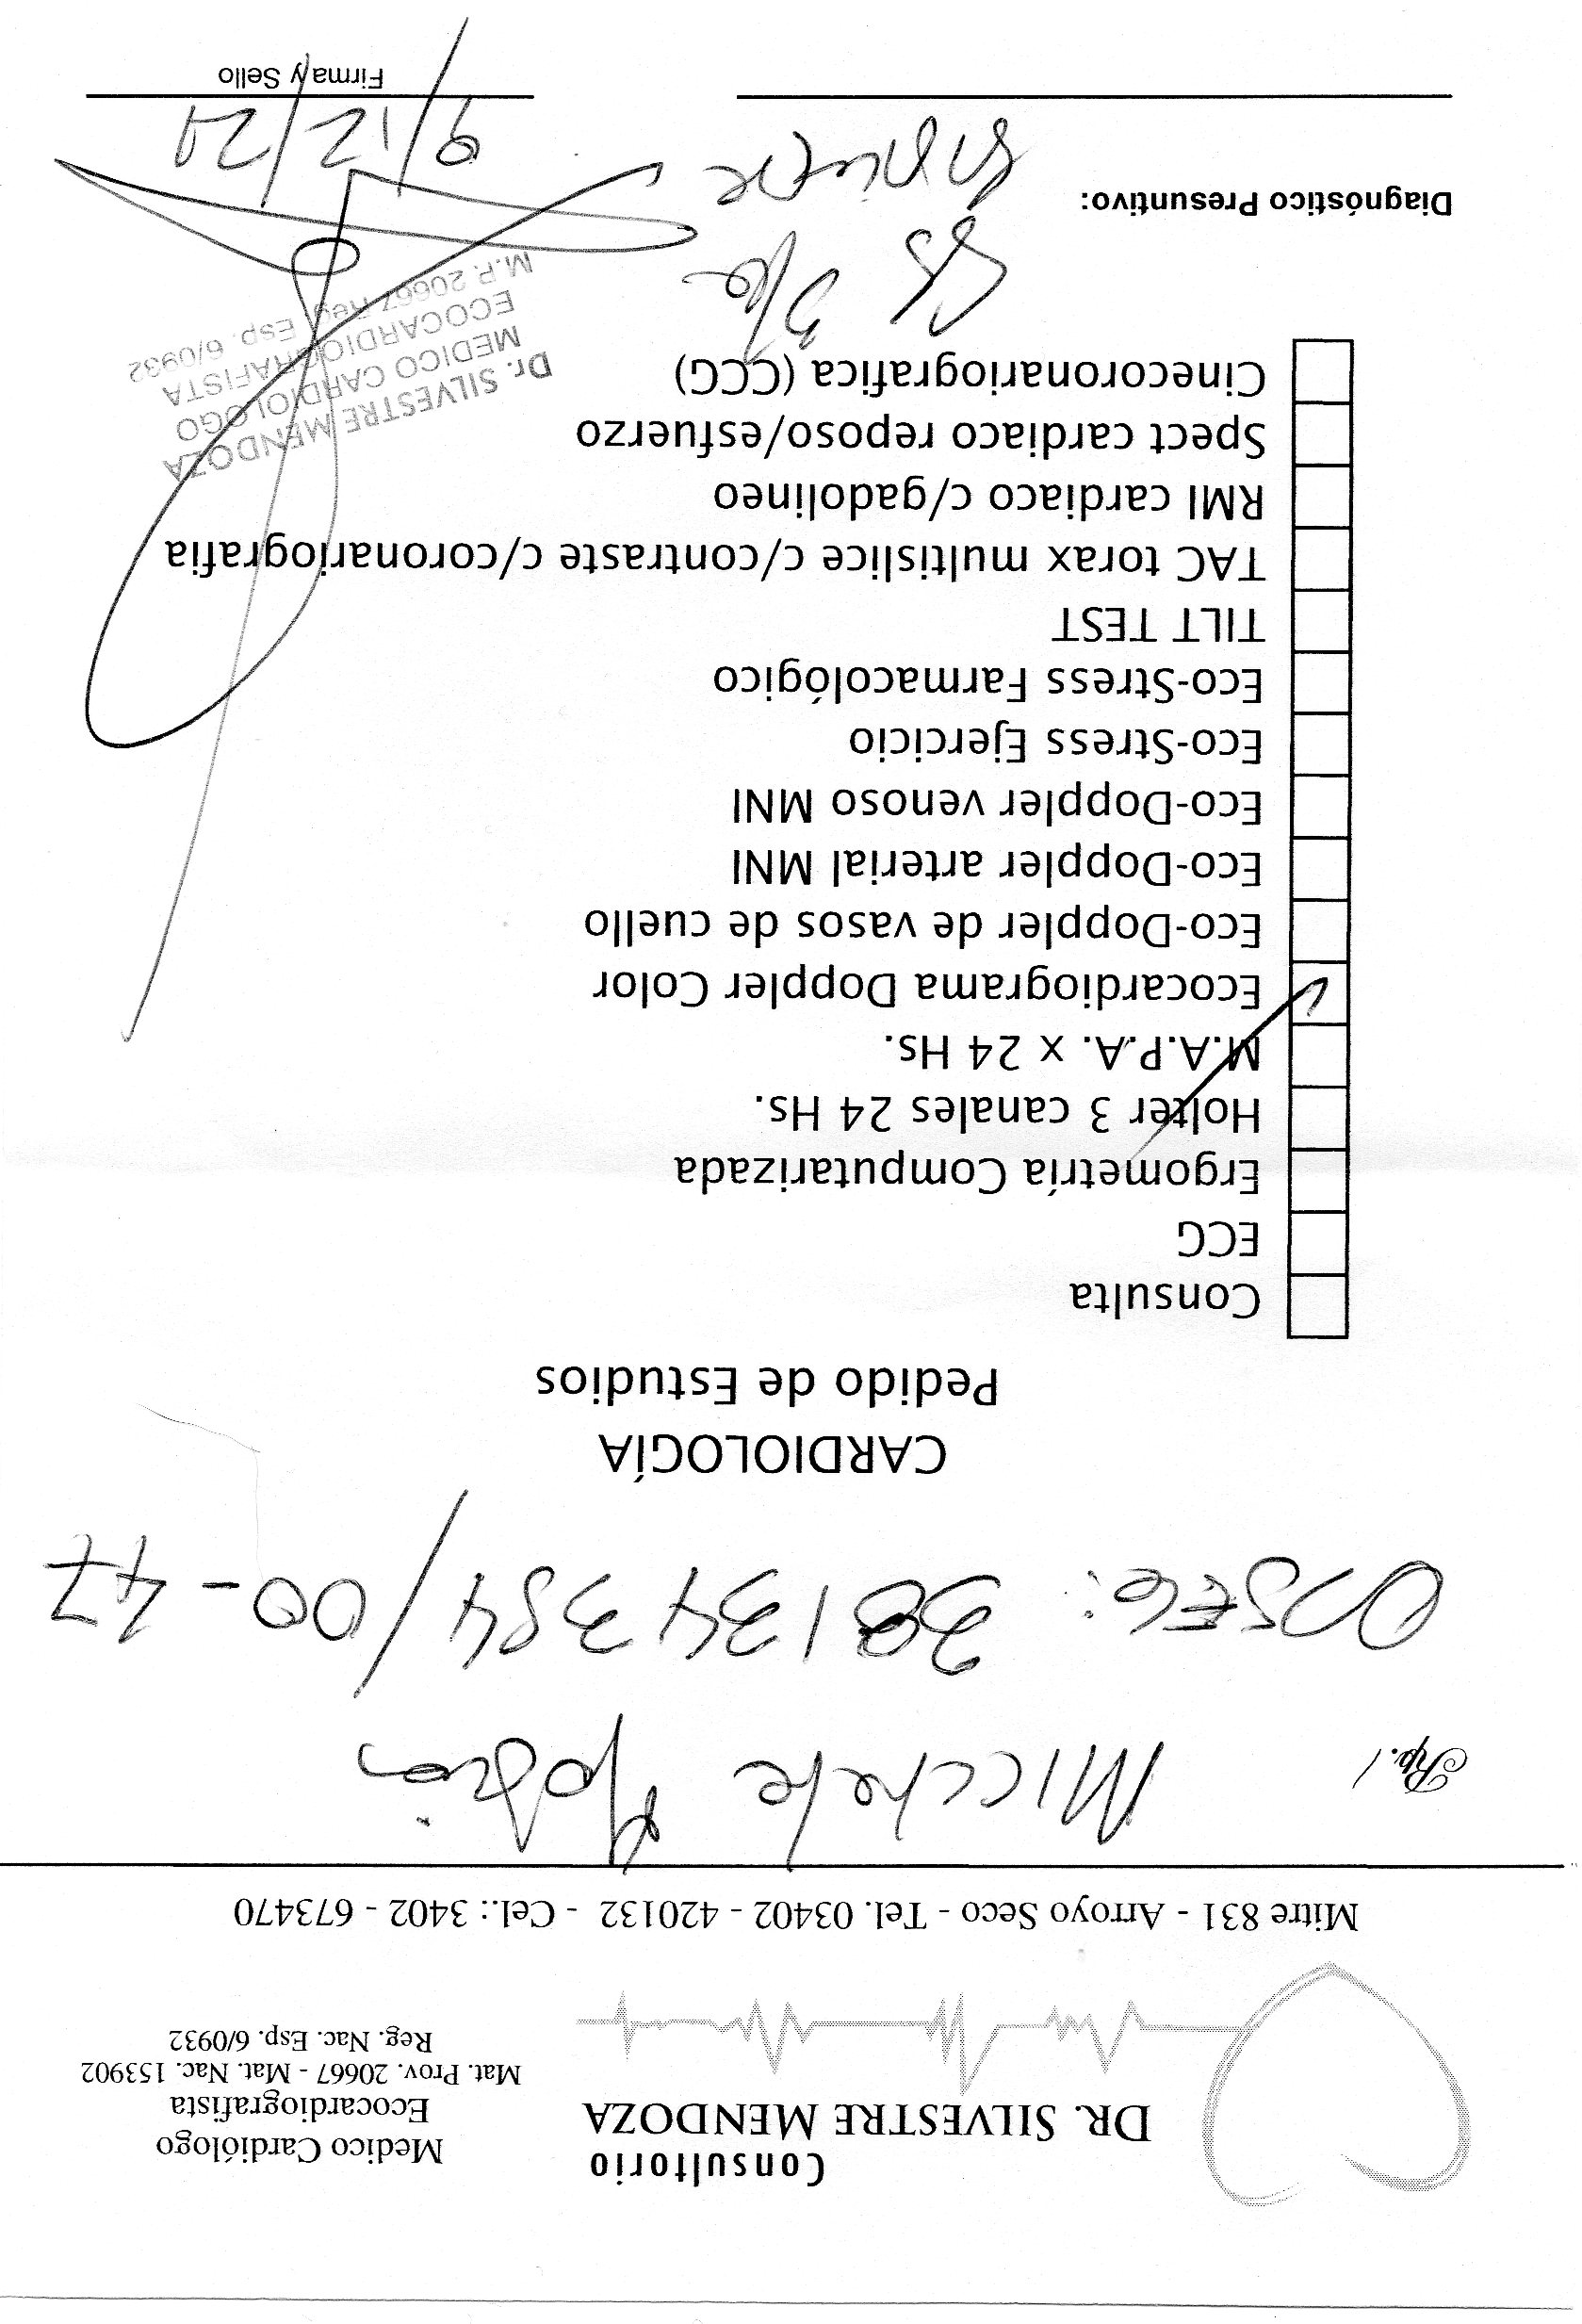 Consultorio
DR. SILVESTRE MENDOZA
Medico Cardiólogo
Ecocardiografista
Mat. Prov. 20667 - Mat. Nac. 153902
Reg. Nac. Esp. 6/0932
Mitre 831 - Arroyo Seco - Tel. 03402 - 420132 - Cel.: 3402 - 673470
Rp./
Matias
38134394/00-47
CARDIOLOGÍA
Pedido de Estudios
Consulta
ECG
Ergometría Computarizada
Holter 3 canales 24 Hs.
M.A.P.A. x 24 Hs.
Ecocardiograma Doppler Color
Eco-Doppler de vasos de cuello
Eco-Doppler arterial MNI
Eco-Doppler venoso MNI
Eco-Stress Ejercicio
Eco-Stress Farmacológico
TILT TEST
TAC torax multislice c/contraste c/coronariografia
RMI cardiaco c/gadolineo
Spect cardiaco reposo/esfuerzo
Cinecoronariografica (CCG)
Dr. SILVESTRE MENDOZA
MEDICO CARDIOLOGO
ECOCARDIOGRAFISTA
M.P. 20667 Reg. Esp. 6/0932
Diagnóstico Presuntivo:
9/12/21
Firma y Sello